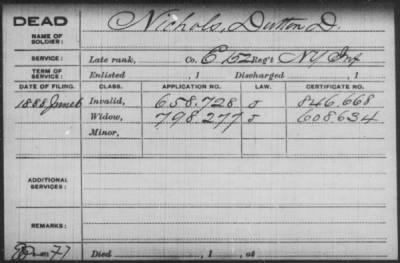 DEAD Nichols, Dutton D.
NAME OF SOLDIER:
SERVICE: Late rank, Co. C, 152 Reg't NY Inf
TERM OF SERVICE: Enlisted , 1 Discharged , 1
DATE OF FILING. CLASS. APPLICATION NO. LAW. CERTIFICATE NO.
1888 June 6 Invalid, 658.728 J 846.668
Widow, 798.277 J 608634
Minor,
ADDITIONAL SERVICES:
REMARKS:
77 Died , 1 , at